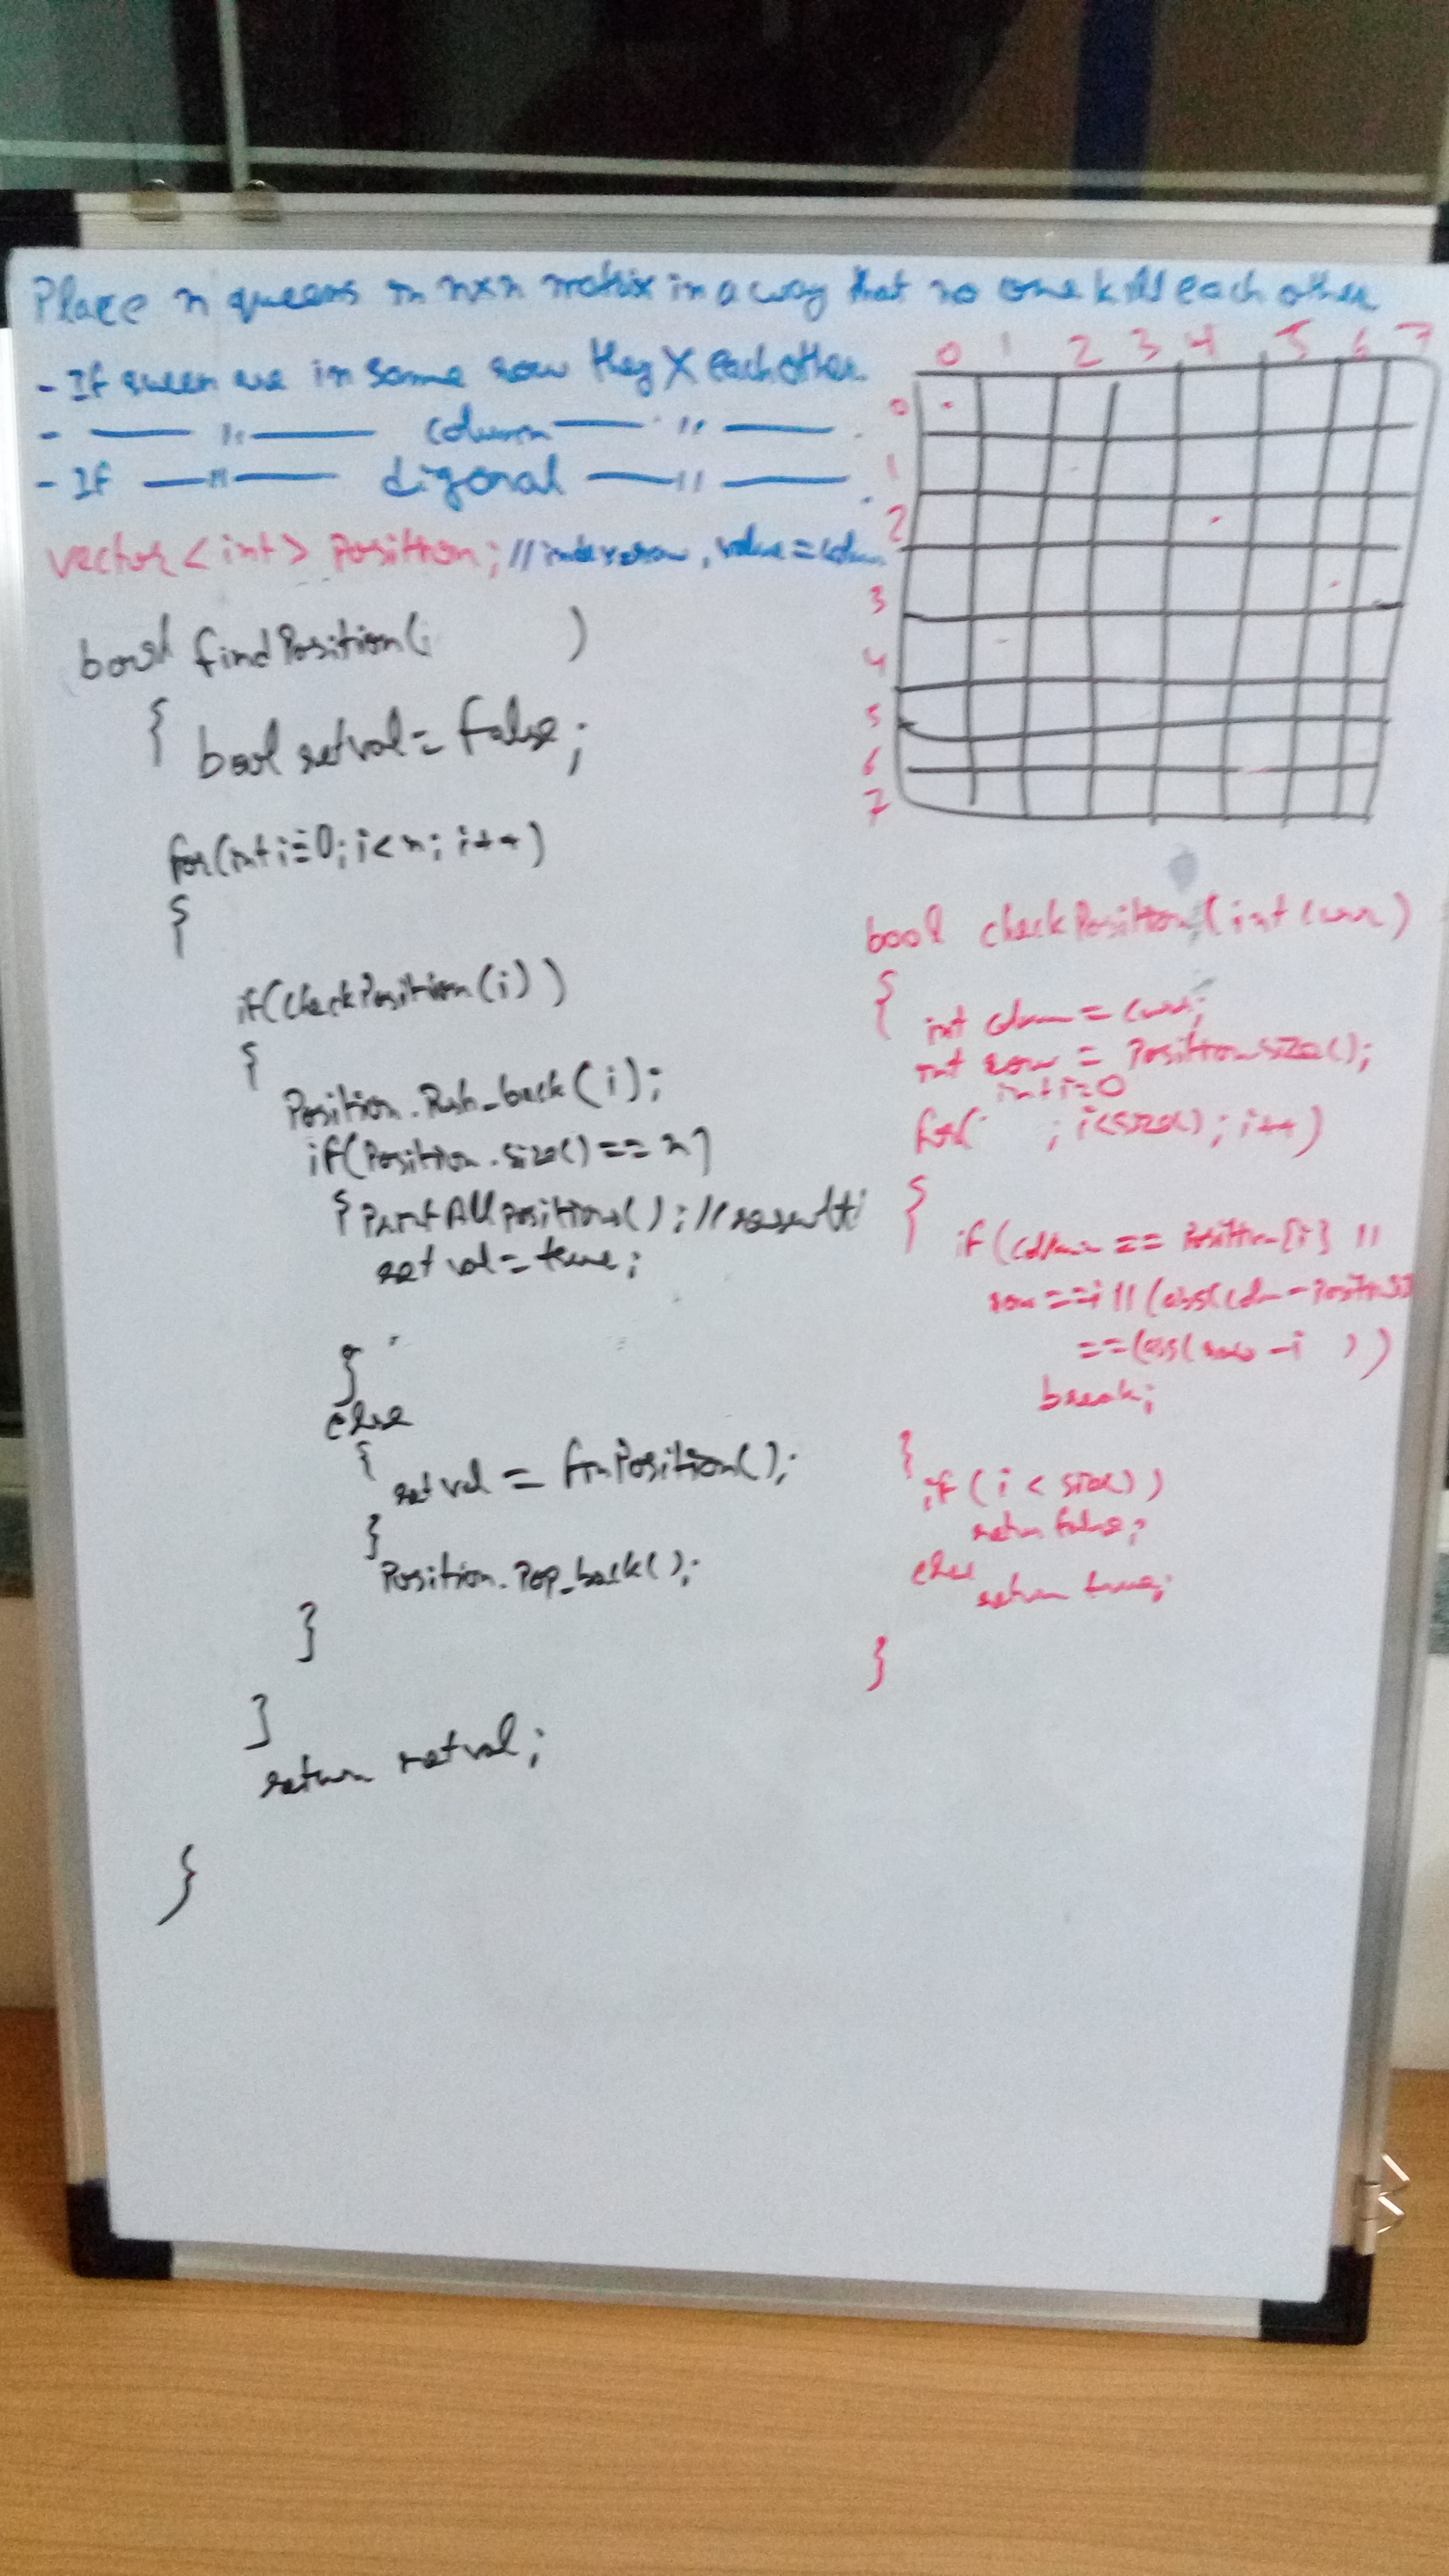 Place n queens in nxn matrix in a way that no one kill each other
- If queen are in same row they X each other.
- — " — column — " — .
- If — " — digonal — " — .
vector<int> Position; // index=row, value=colum
bool findPosition( )
{ bool retval = false;
for(int i=0; i<n; i++)
{
if(checkPosition(i))
{
Position.Push_back(i);
if(Position.size() == n)
{ PrintAllPositions(); //
retval = true;
}
else
{
retval = finPosition();
}
Position.Pop_back();
}
}
return retval;
}
0 1 2 3 4 5 6 7
0
1
2
3
4
5
6
7
bool checkPosition(int curr)
{
int colum = curr;
int row = Position size();
int i=0
for( ; i<size(); i++)
{
if(colum == Position[i] ||
row == i || (abs(colm - Position[i]
== (abs(row - i ))
break;
}
if (i < size())
retun false;
else
return true;
}